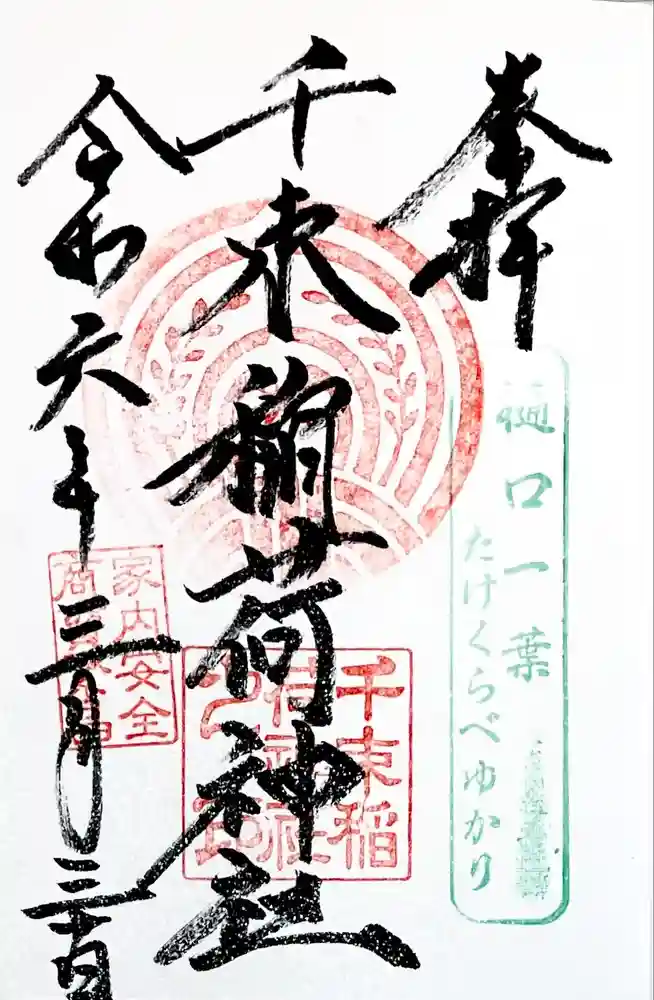 奉拝
樋口一葉
たけくらべゆかり
千束稲荷神社
千束稲
荷神社
之印
令和六年三月三十日
家内安全
商売繁昌